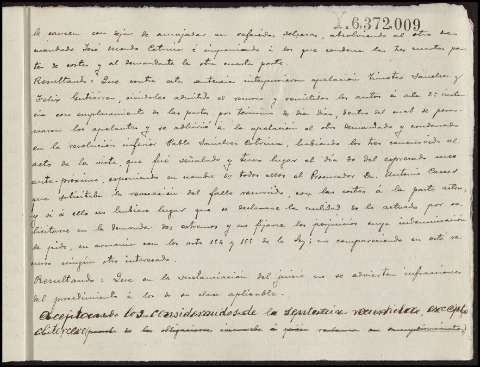 1.6,372.009
le causen con dejar de enrejadas en referidas dehesas, absolviendo al otro de-
mandado José Criado Cotrina é imponiendo á los que condena las tres cuartas par-
te de costas y al demandante la otra cuarta parte.
Resultando: Que contra esta sentencia interpusieron apelación Timoteo Sanchez y
Felix Gutierrez, siéndoles admitido el recurso y remitidos los autos á esta 2ª instan-
cia con emplazamiento de las partes por término de diez días, dentro del cual se perso-
naron los apelantes y se adhirió á la apelación el otro demandado y condenado
en la resolución inferior Pablo Sanchez Cotrina, habiendo los tres concurrido al
acto de la vista, que fué señalado y tuvo lugar el día 30 del expresado mes
ante-proximo, exponiendo en nombre de todos ellos el Procurador Dn. Antonio
que solicitaba la revocación del fallo recurrido, con las costas á la parte actora,
y si á ello no hubiere lugar que se declarase la nulidad de lo actuado por so-
licitarse en la demanda dos extremos y no fijarse los perjuicios cuya indemnización
se pide, en armonía con los arts 154 y 155 de la Ley; no compareciendo en este re-
curso ningún otro interesado.
Resultando: Que en la sustanciación del juicio no se advierten infracciones
del procedimiento á los de su clase aplicable.
Aceptando los Considerandos de la sentencia recurrida, excepto
el tercero (puesto de las obligaciones